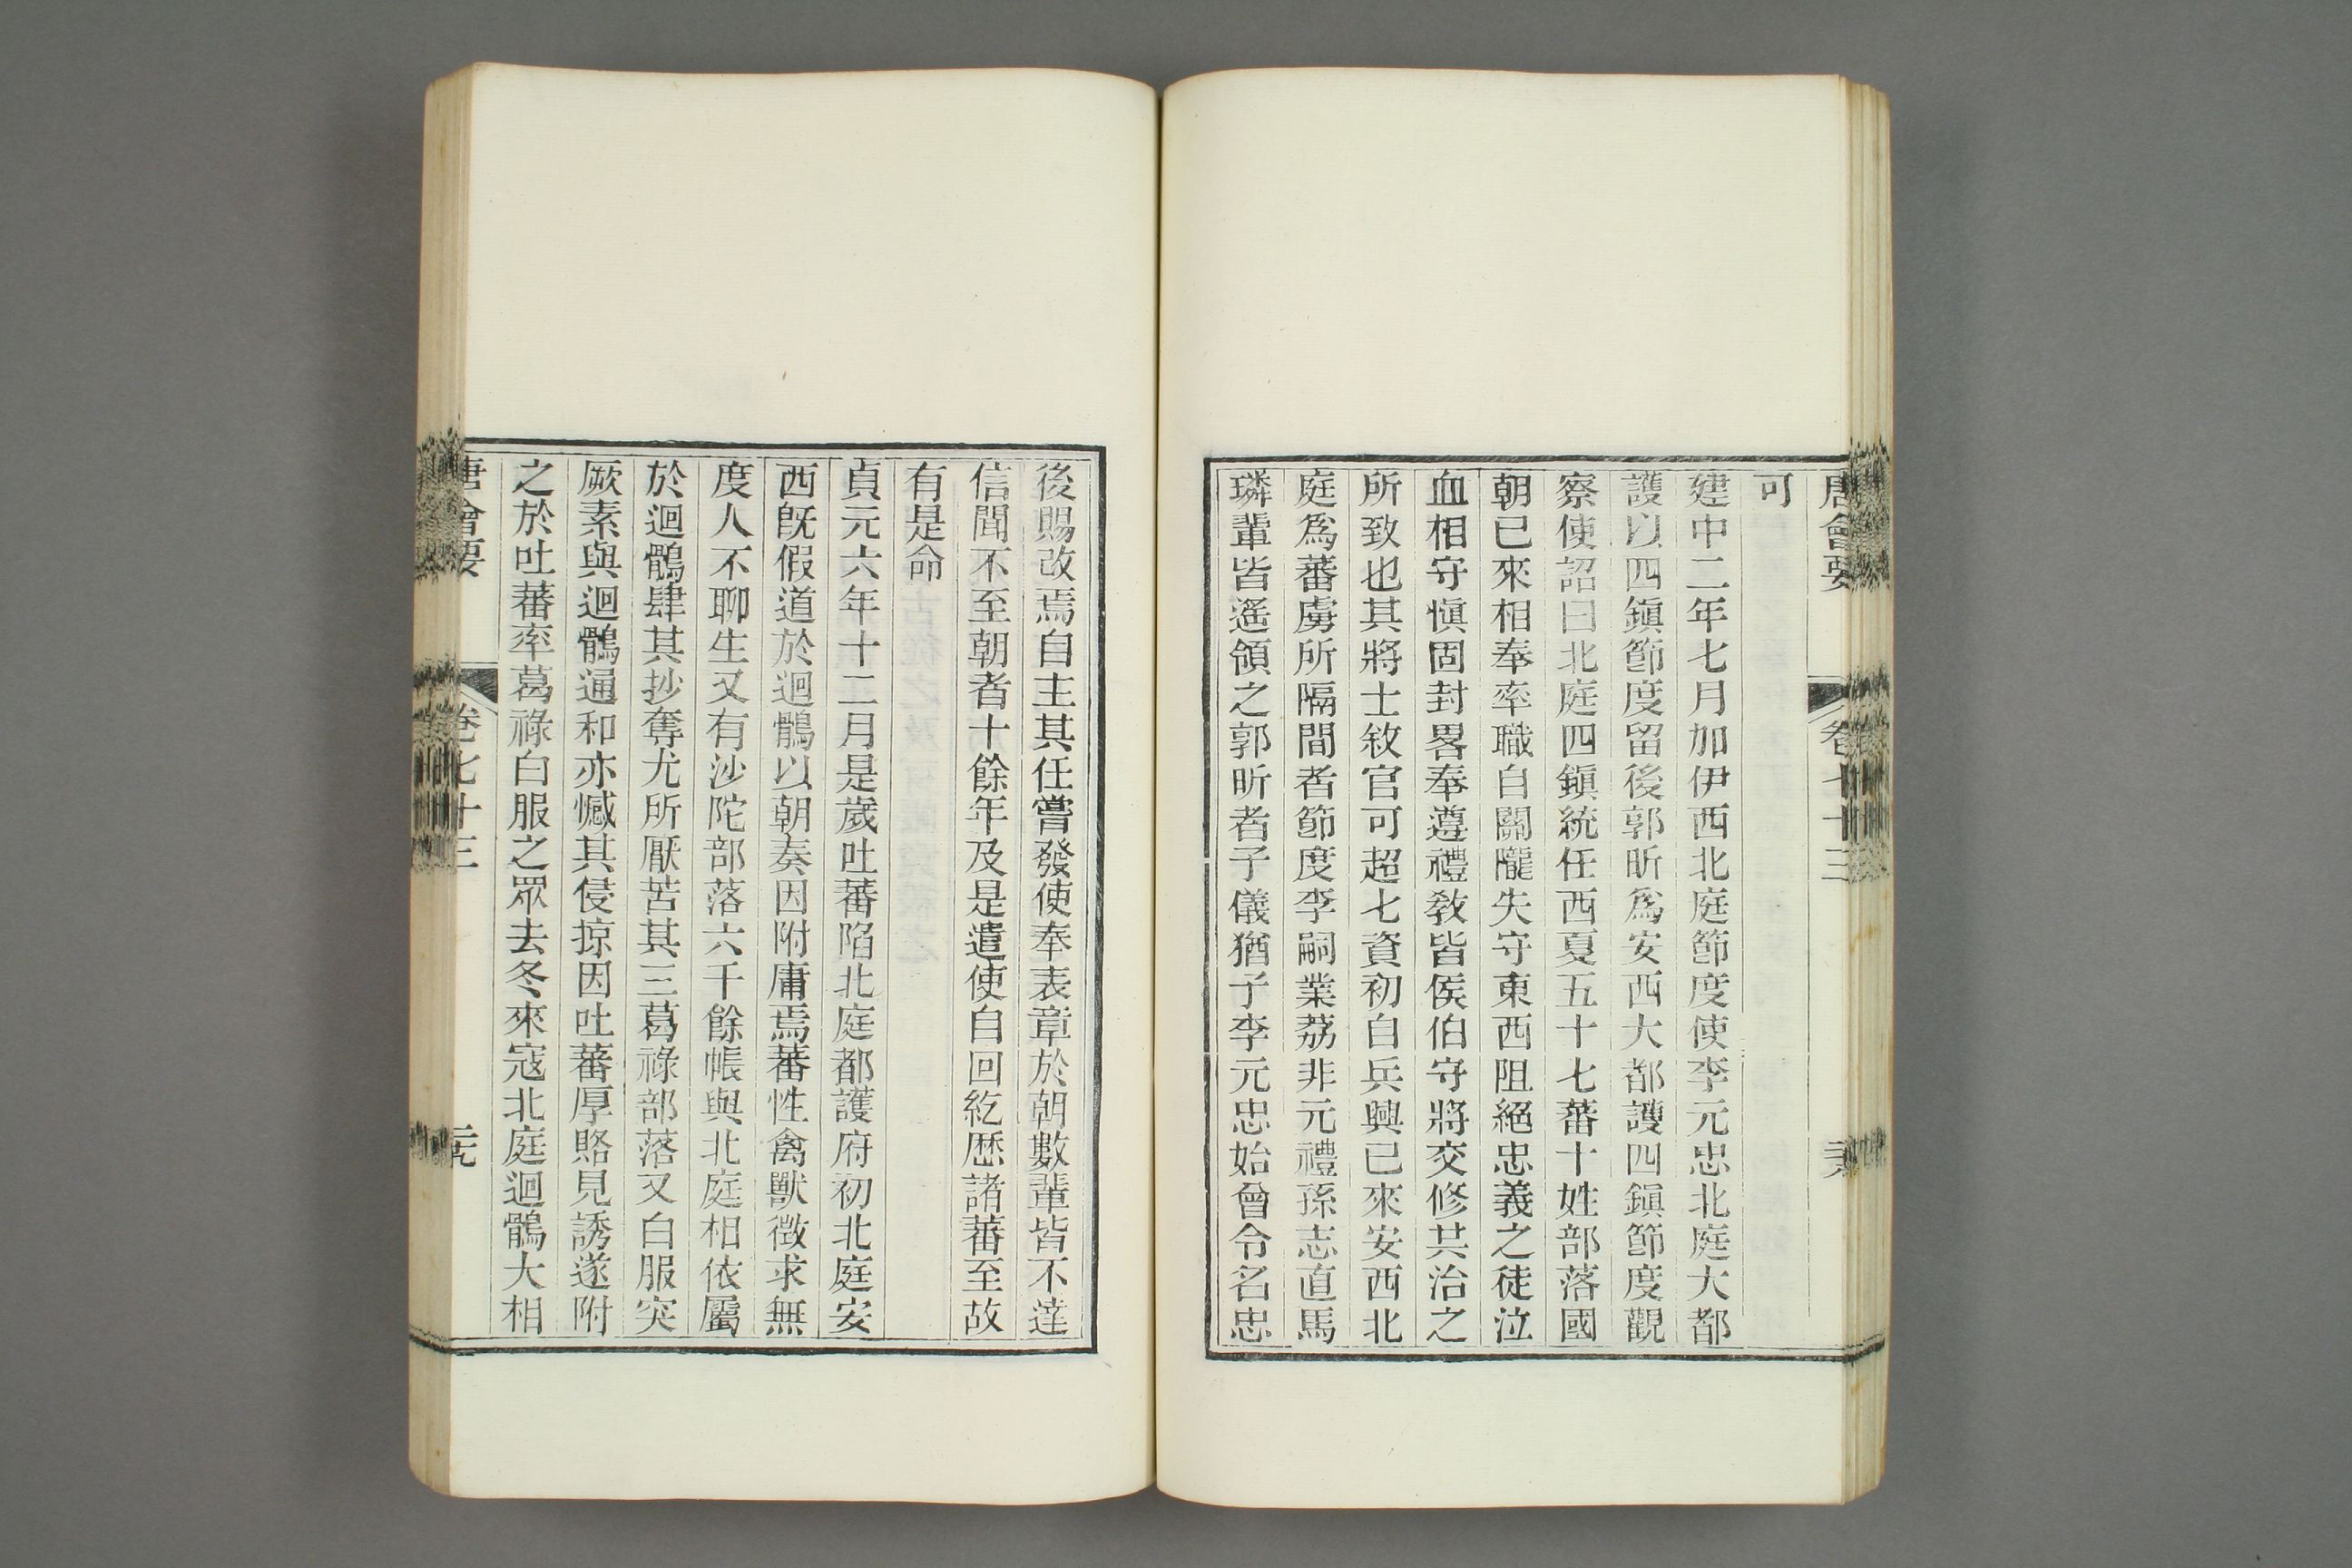 唐會要 卷七十三
可
建中二年七月加伊西北庭節度使李元忠北庭大都
護以四鎮節度留後郭昕爲安西大都護四鎮節度觀
察使詔曰北庭四鎮統任西夏五十七蕃十姓部落國
朝已來相奉率職自關隴失守東西阻絕忠義之徒泣
血相守愼固封畧奉遵禮敎皆侯伯守將交修共治之
所致也其將士敘官可超七資初自兵興已來安西北
庭爲蕃虜所隔間者節度李嗣業荔非元禮孫志直馬
璘輩皆遙領之郭昕者子儀猶子李元忠始曾令名忠
後賜改焉自主其任嘗發使奉表章於朝數輩皆不達
信聞不至朝者十餘年及是遣使自回紇歷諸蕃至故
有是命
貞元六年十二月是歲吐蕃陷北庭都護府初北庭安
西旣假道於迴鶻以朝奏因附庸焉蕃性禽獸徵求無
度人不聊生又有沙陀部落六千餘帳與北庭相依屬
於迴鶻肆其抄奪尤所厭苦其三葛祿部落又白服突
厥素與迴鶻通和亦憾其侵掠因吐蕃厚賂見誘遂附
之於吐蕃率葛祿白服之眾去冬來寇北庭迴鶻大相
唐會要 卷七十三